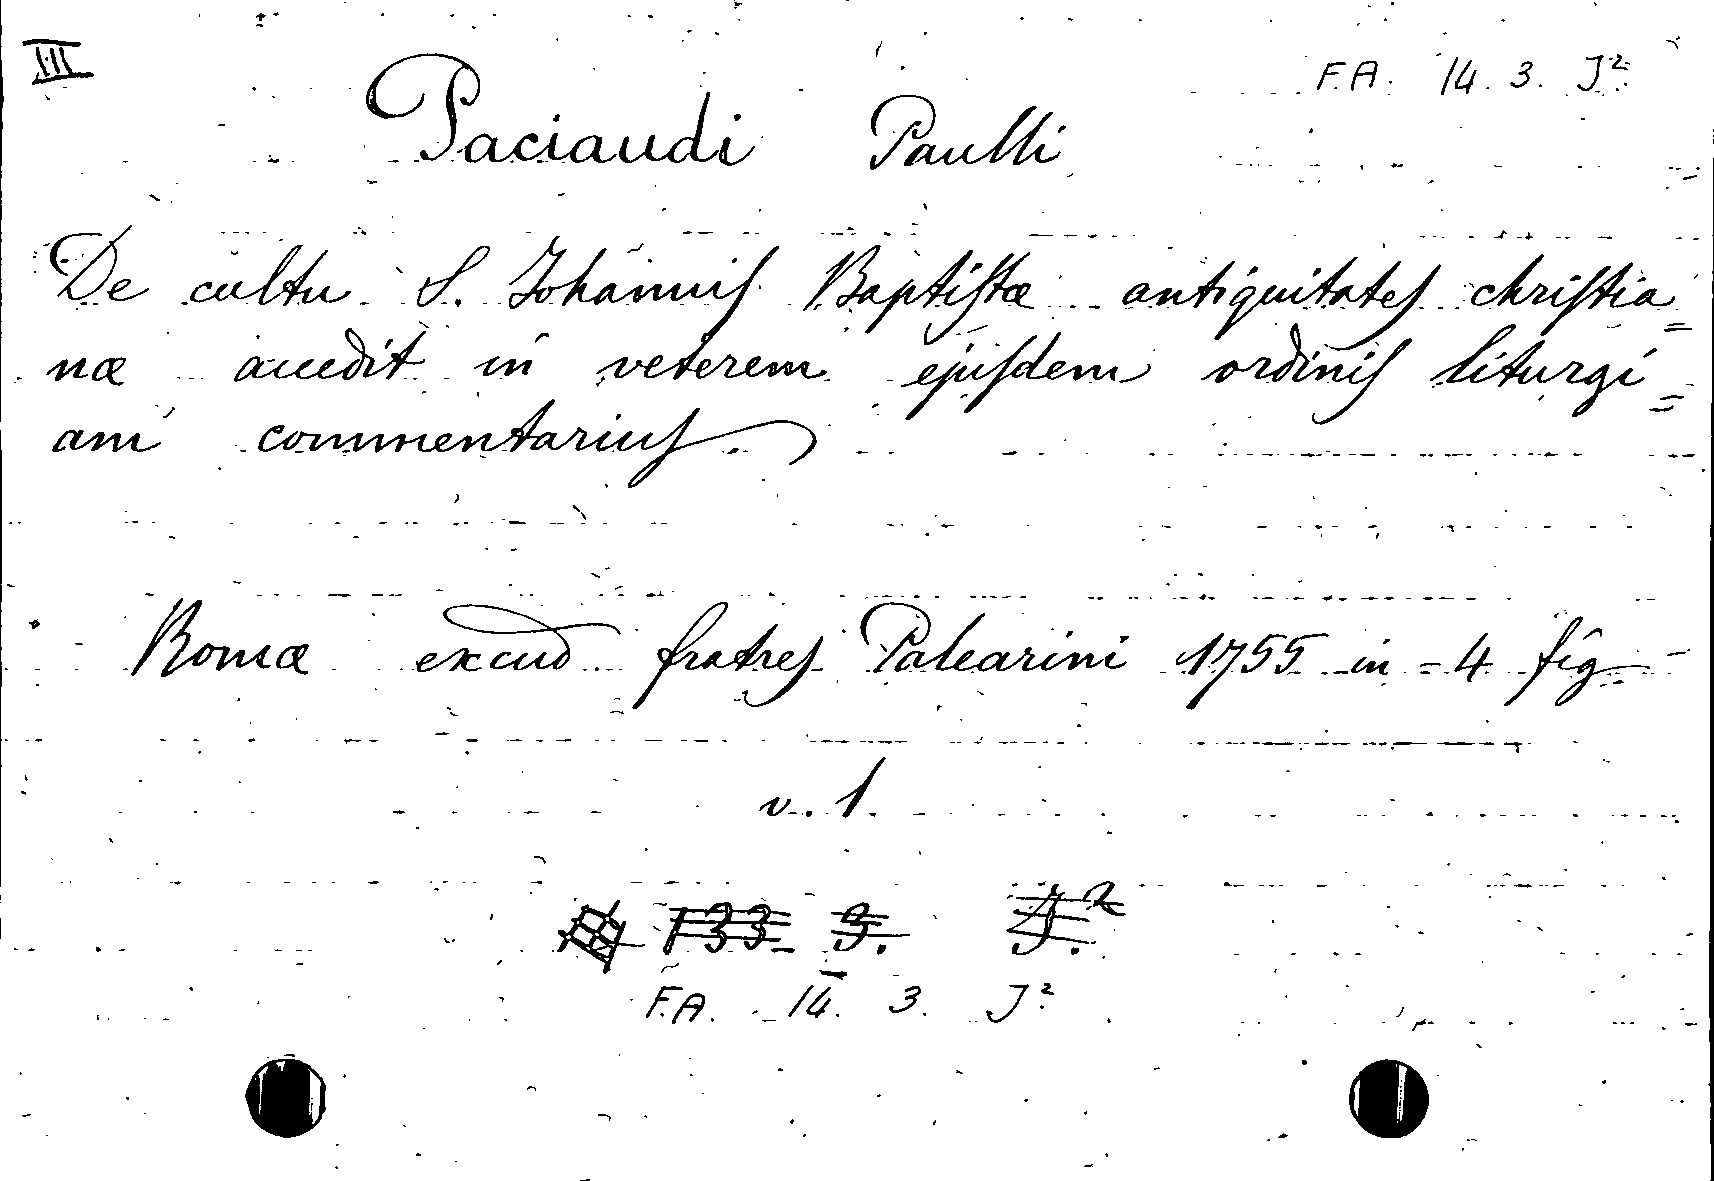 III
F.A. 14. 3. J².
Paciaudi Paulli
De cultu S. Johannis Baptistæ antiquitates christia=
næ accedit in veterem ejusdem ordinis liturgi=
am commentarius.
Romæ excud fratres Palearini 1755 in-4 fig
v. 1.
133 3. J.²
F.A. 14. 3. J²